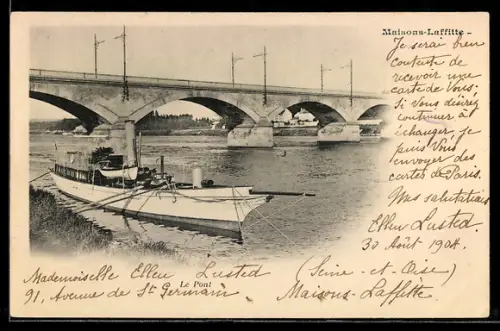 Maisons-Laffitte -
Je serai bien
contente de
recevoir une
carte de Vous;
Si Vous désirez
continuer à
échanger, je
puis Vous
envoyer des
cartes de Paris.
Mes salutations
Ellen Lusted
30 Août 1904.
Le Pont
Mademoiselle Ellen Lusted (Seine-et-Oise)
91, Avenue de St Germain Maisons-Laffitte.